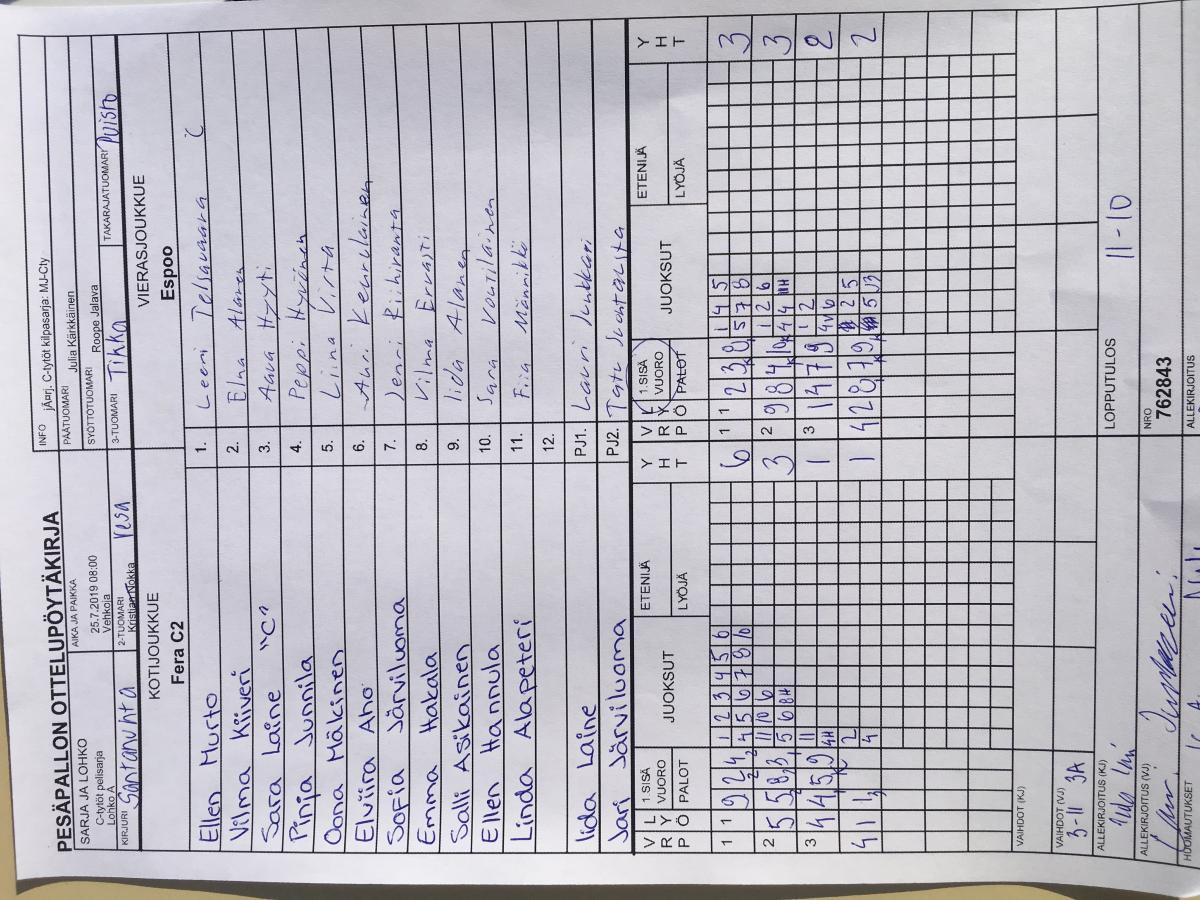 PESÄPALLON OTTELUPÖYTÄKIRJA
SARJA JA LOHKO
C-tytöt pelisarja
Lohko A
AIKA JA PAIKKA
25.7.2019 08:00
Vehkoja
INFO jÄ¤rj. C-tytöt kilpasarja: MJ-Cty
PÄÄTUOMARI Julia Kärkkäinen
SYÖTTÖTUOMARI Roope Jalava
KIRJURI Santanuhta
2-TUOMARI
Kristian Nokka Vesa
3-TUOMARI Tikka
TAKARAJATUOMARI Puisto
KOTIJOUKKUE
Fera C2
VIERASJOUKKUE
Espoo
Ellen Murto 1. Leeni Telsavaara C
Vilma Kiiveri 2. Elna Alanen
Sara Laine "C" 3. Aava Hyyti
Pinja Junnila 4. Peppi Hyvönen
Oona Mälkinen 5. Liina Virta
Elviira Aho 6. Auri Keurulainen
Sofia Järviluoma 7. Jenni Riihiranta
Emma Hakala 8. Vilma Ervasti
Salli Asikainen 9. Iida Alanen
Ellen Hannula 10. Sara Voutilainen
Linda Alapeteri 11. Fiia Männikkö
12.
Iida Laine PJ1. Lauri Junkkari
Jari Järviluoma PJ2.
V R P L Y Ö 1.SISÄ VUORO PALOT JUOKSUT ETENIJÄ LYÖJÄ Y H T
V R P L Y Ö 1.SISÄ VUORO PALOT JUOKSUT ETENIJÄ LYÖJÄ Y H T
1 1 9 2 4 1 2 3 4 5 6 6
4 5 6 7 8 10
2 5 5 8 3 11 10 6 3
5 6 8H
3 4 4 5 9 11 1
4H
4 1 1 2 1
4
1 1 2 3 8 1 4 5 3
5 7 8
2 9 8 4 1 2 6 3
3 1 4 7 9 1 2 2
4 2 8 7 9 2 5 2
VAIHDOT (KJ)
VAIHDOT (VJ)
3-11 3A
ALLEKIRJOITUS (KJ)
LOPPUTULOS 11-10
ALLEKIRJOITUS (VJ)
NRO
762843
HUOMAUTUKSET
ALLEKIRJOITUS